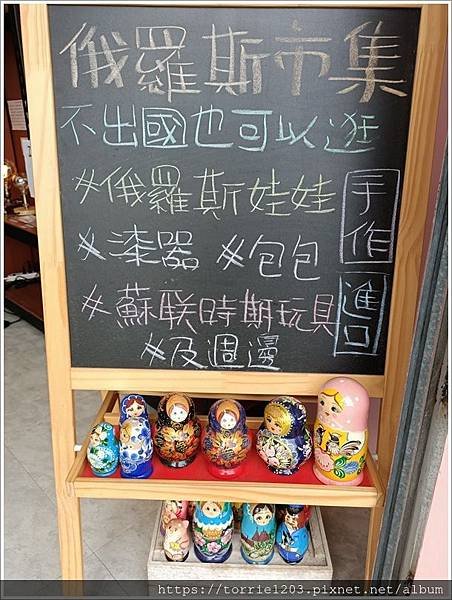 俄羅斯市集
不出國也可以逛
#俄羅斯娃娃
#漆器 #包包
#蘇联時期玩具
#及週邊
手作
進口
https://torrie1203.pixnet.net/album